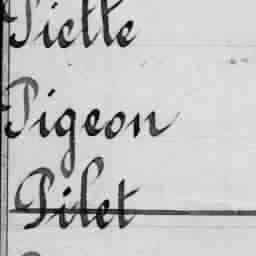 Piette
Pigeon
Pilet